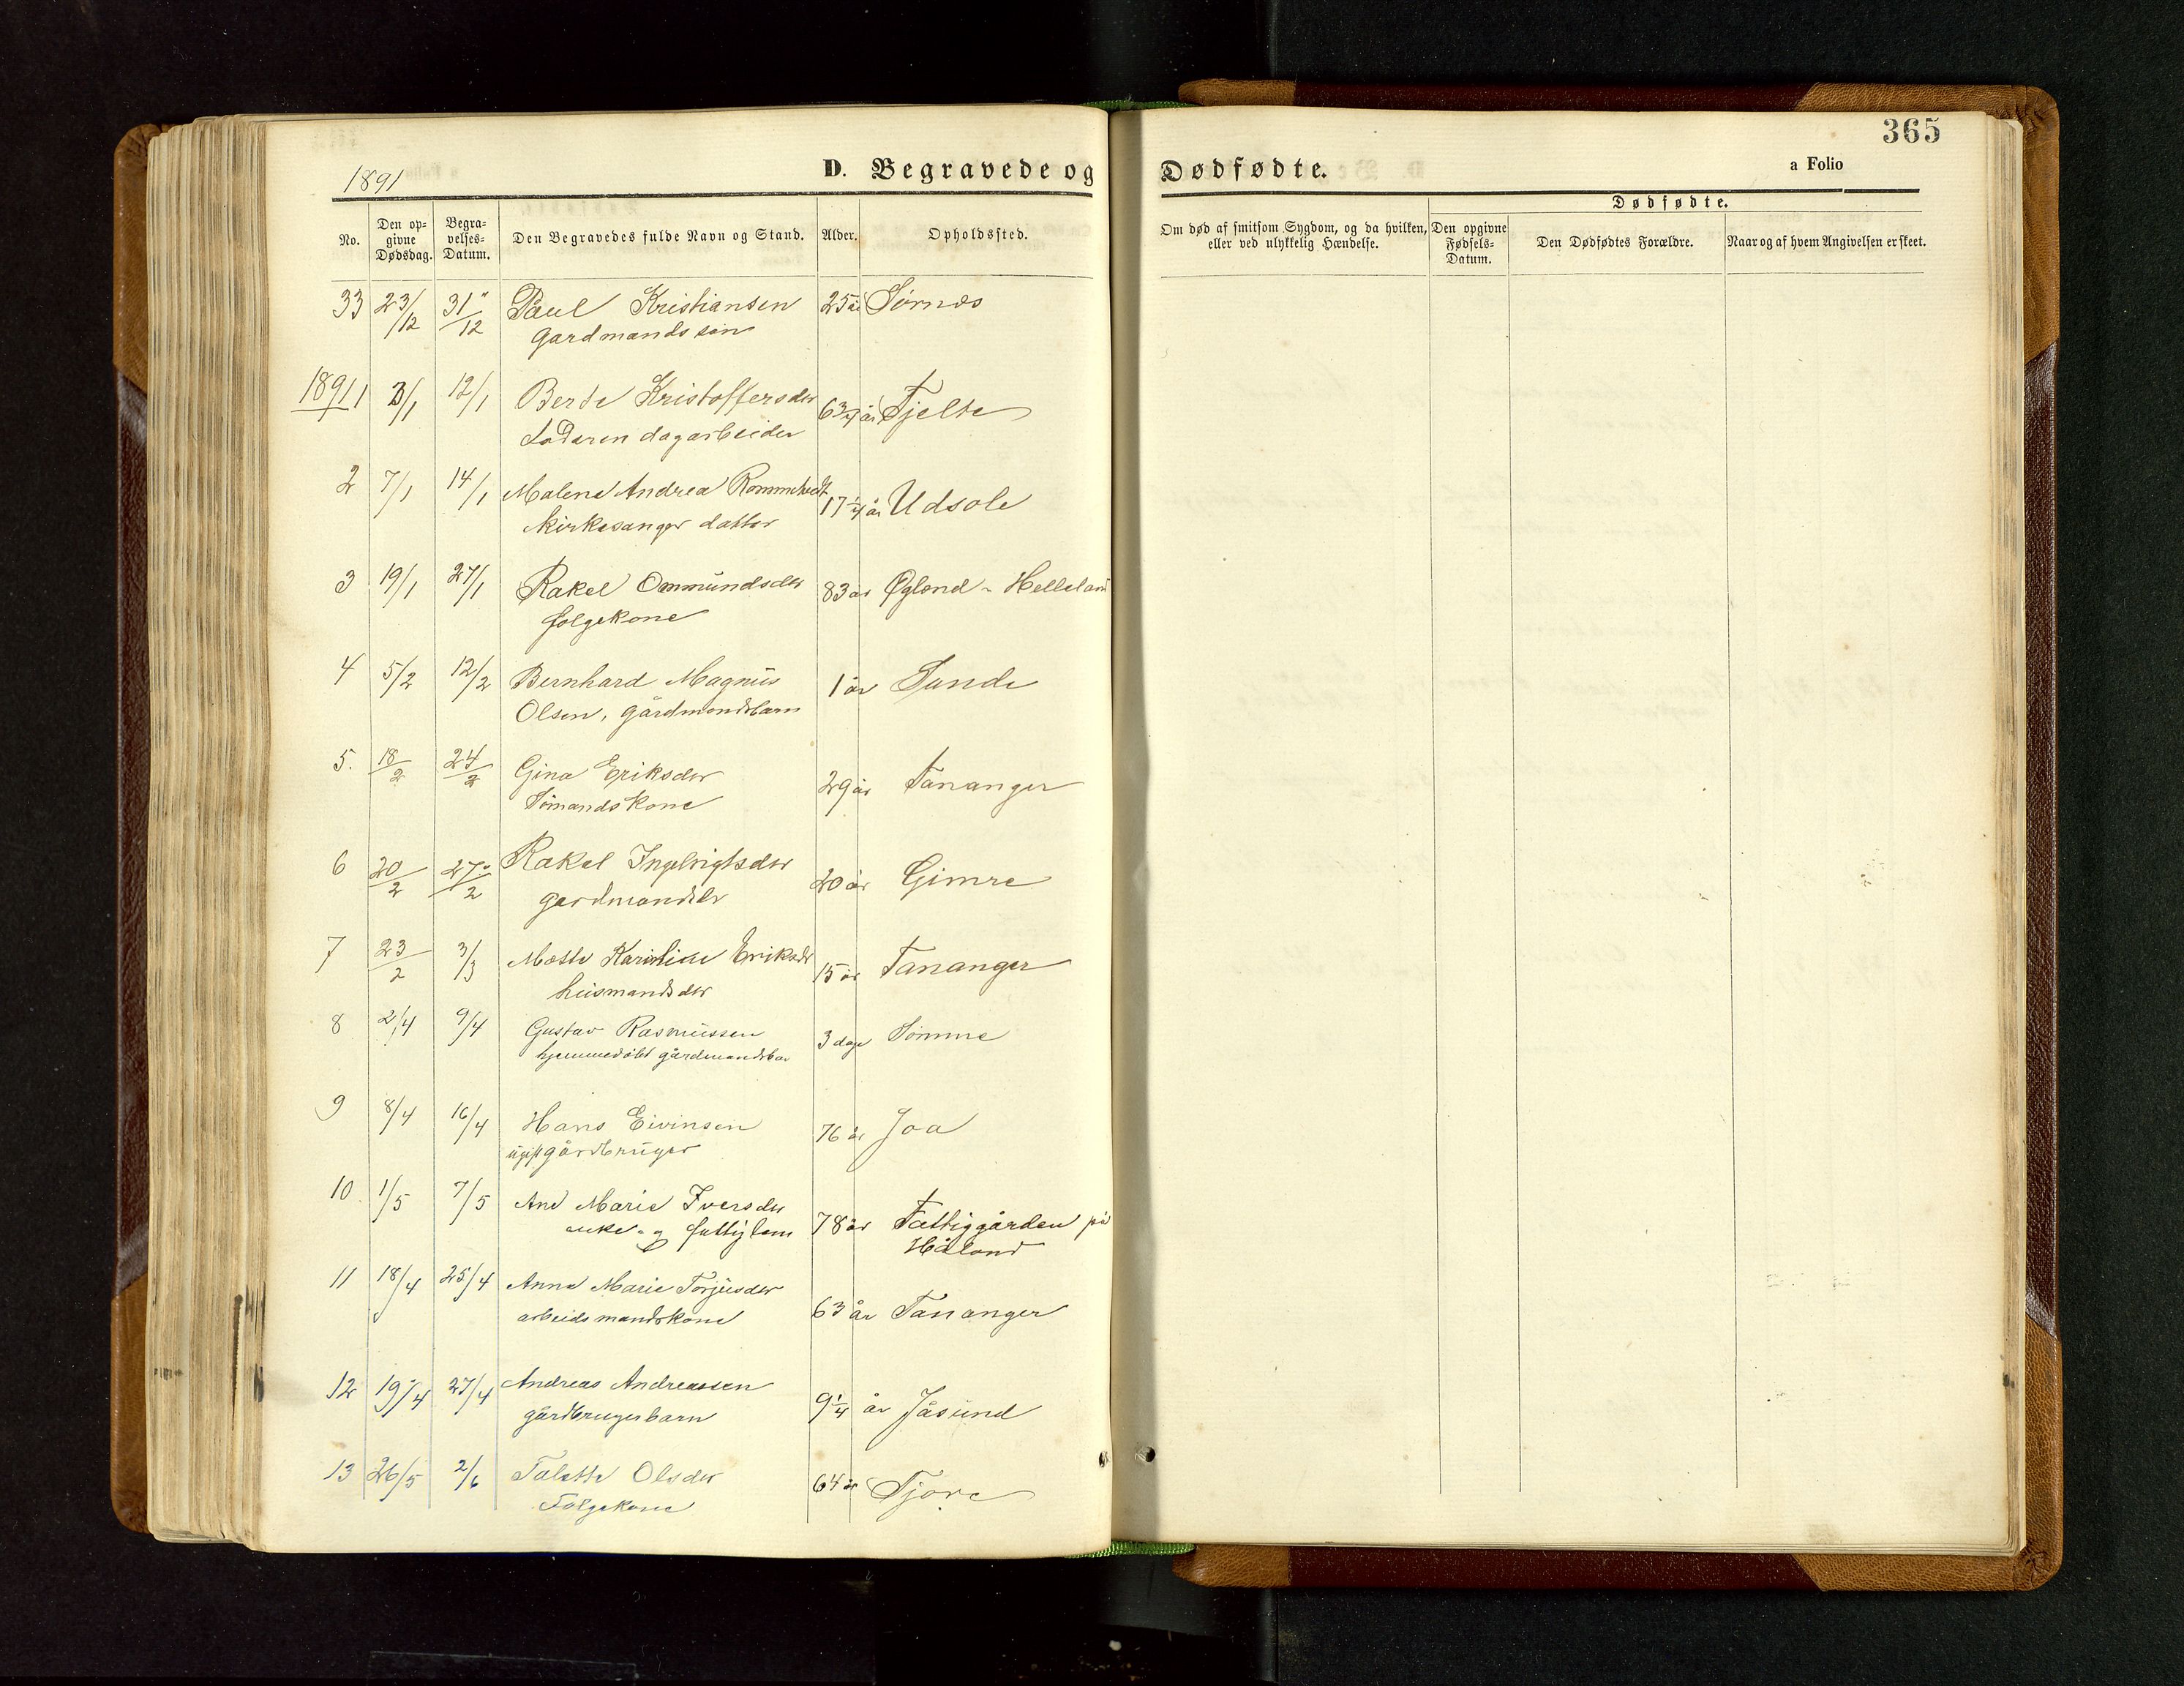 365
1891
D. Begravede og Dødfødte.
a Folio
No.
Den opgivne Dødsdag.
Begravelses-Datum.
Den Begravedes fulde Navn og Stand.
Alder.
Opholdssted.
Om død af smitsom Sygdom, og da hvilken, eller ved ulykkelig Hændelse.
Dødfødte.
Den opgivne Fødsels-Datum.
Den Dødfødtes Forældre.
Naar og af hvem Angivelsen er skeet.
33 23/12 31/12 Paul Kristiansen 25 år Sørnes
gardmandssøn
1891 1 3/1 12/1 Berte Kristoffersdtr 63 år Fjelte
dagarbeider
2 7/1 14/1 Malene Andrea 17 1/4 år Udsole
kirkesanger datter
3 19/1 27/1 Rakel Ommundsdtr 83 år Øgland - Helleland
følgekone
4 5/2 12/2 Bernhard Magnus 1 år Sunde
Olsen, gårdmandsbarn
5. 18/2 24/2 Gina Eriksdtr 29 år Tananger
Sømandskone
6 20/2 27/2 Rakel Ingebrigtsdtr 20 år Gimre
gardmandsdtr
7 23/2 3/3 Mette Eriksdtr 15 år Tananger
husmandsdtr
8 2/4 9/4 Gustav Rasmussen 3 dage Sømme
hjemmedøbt gårdmandsbar
9 8/4 16/4 Hans Eivinsen 76 år Joa
gårdbruger
10 1/5 7/5 Ane Marie Iversdtr 78 år Fattiggården på
enke og fattiglem Håland
11 18/4 25/4 Anna Marie Torjusdtr 63 år Tananger
arbeidsmandskone
12 19/4 27/4 Andreas Andreassen 9 1/4 år Jåsund
gårdbrugerbarn
13 26/5 2/6 Talette Olsdtr 64 år Tjore
Følgekone